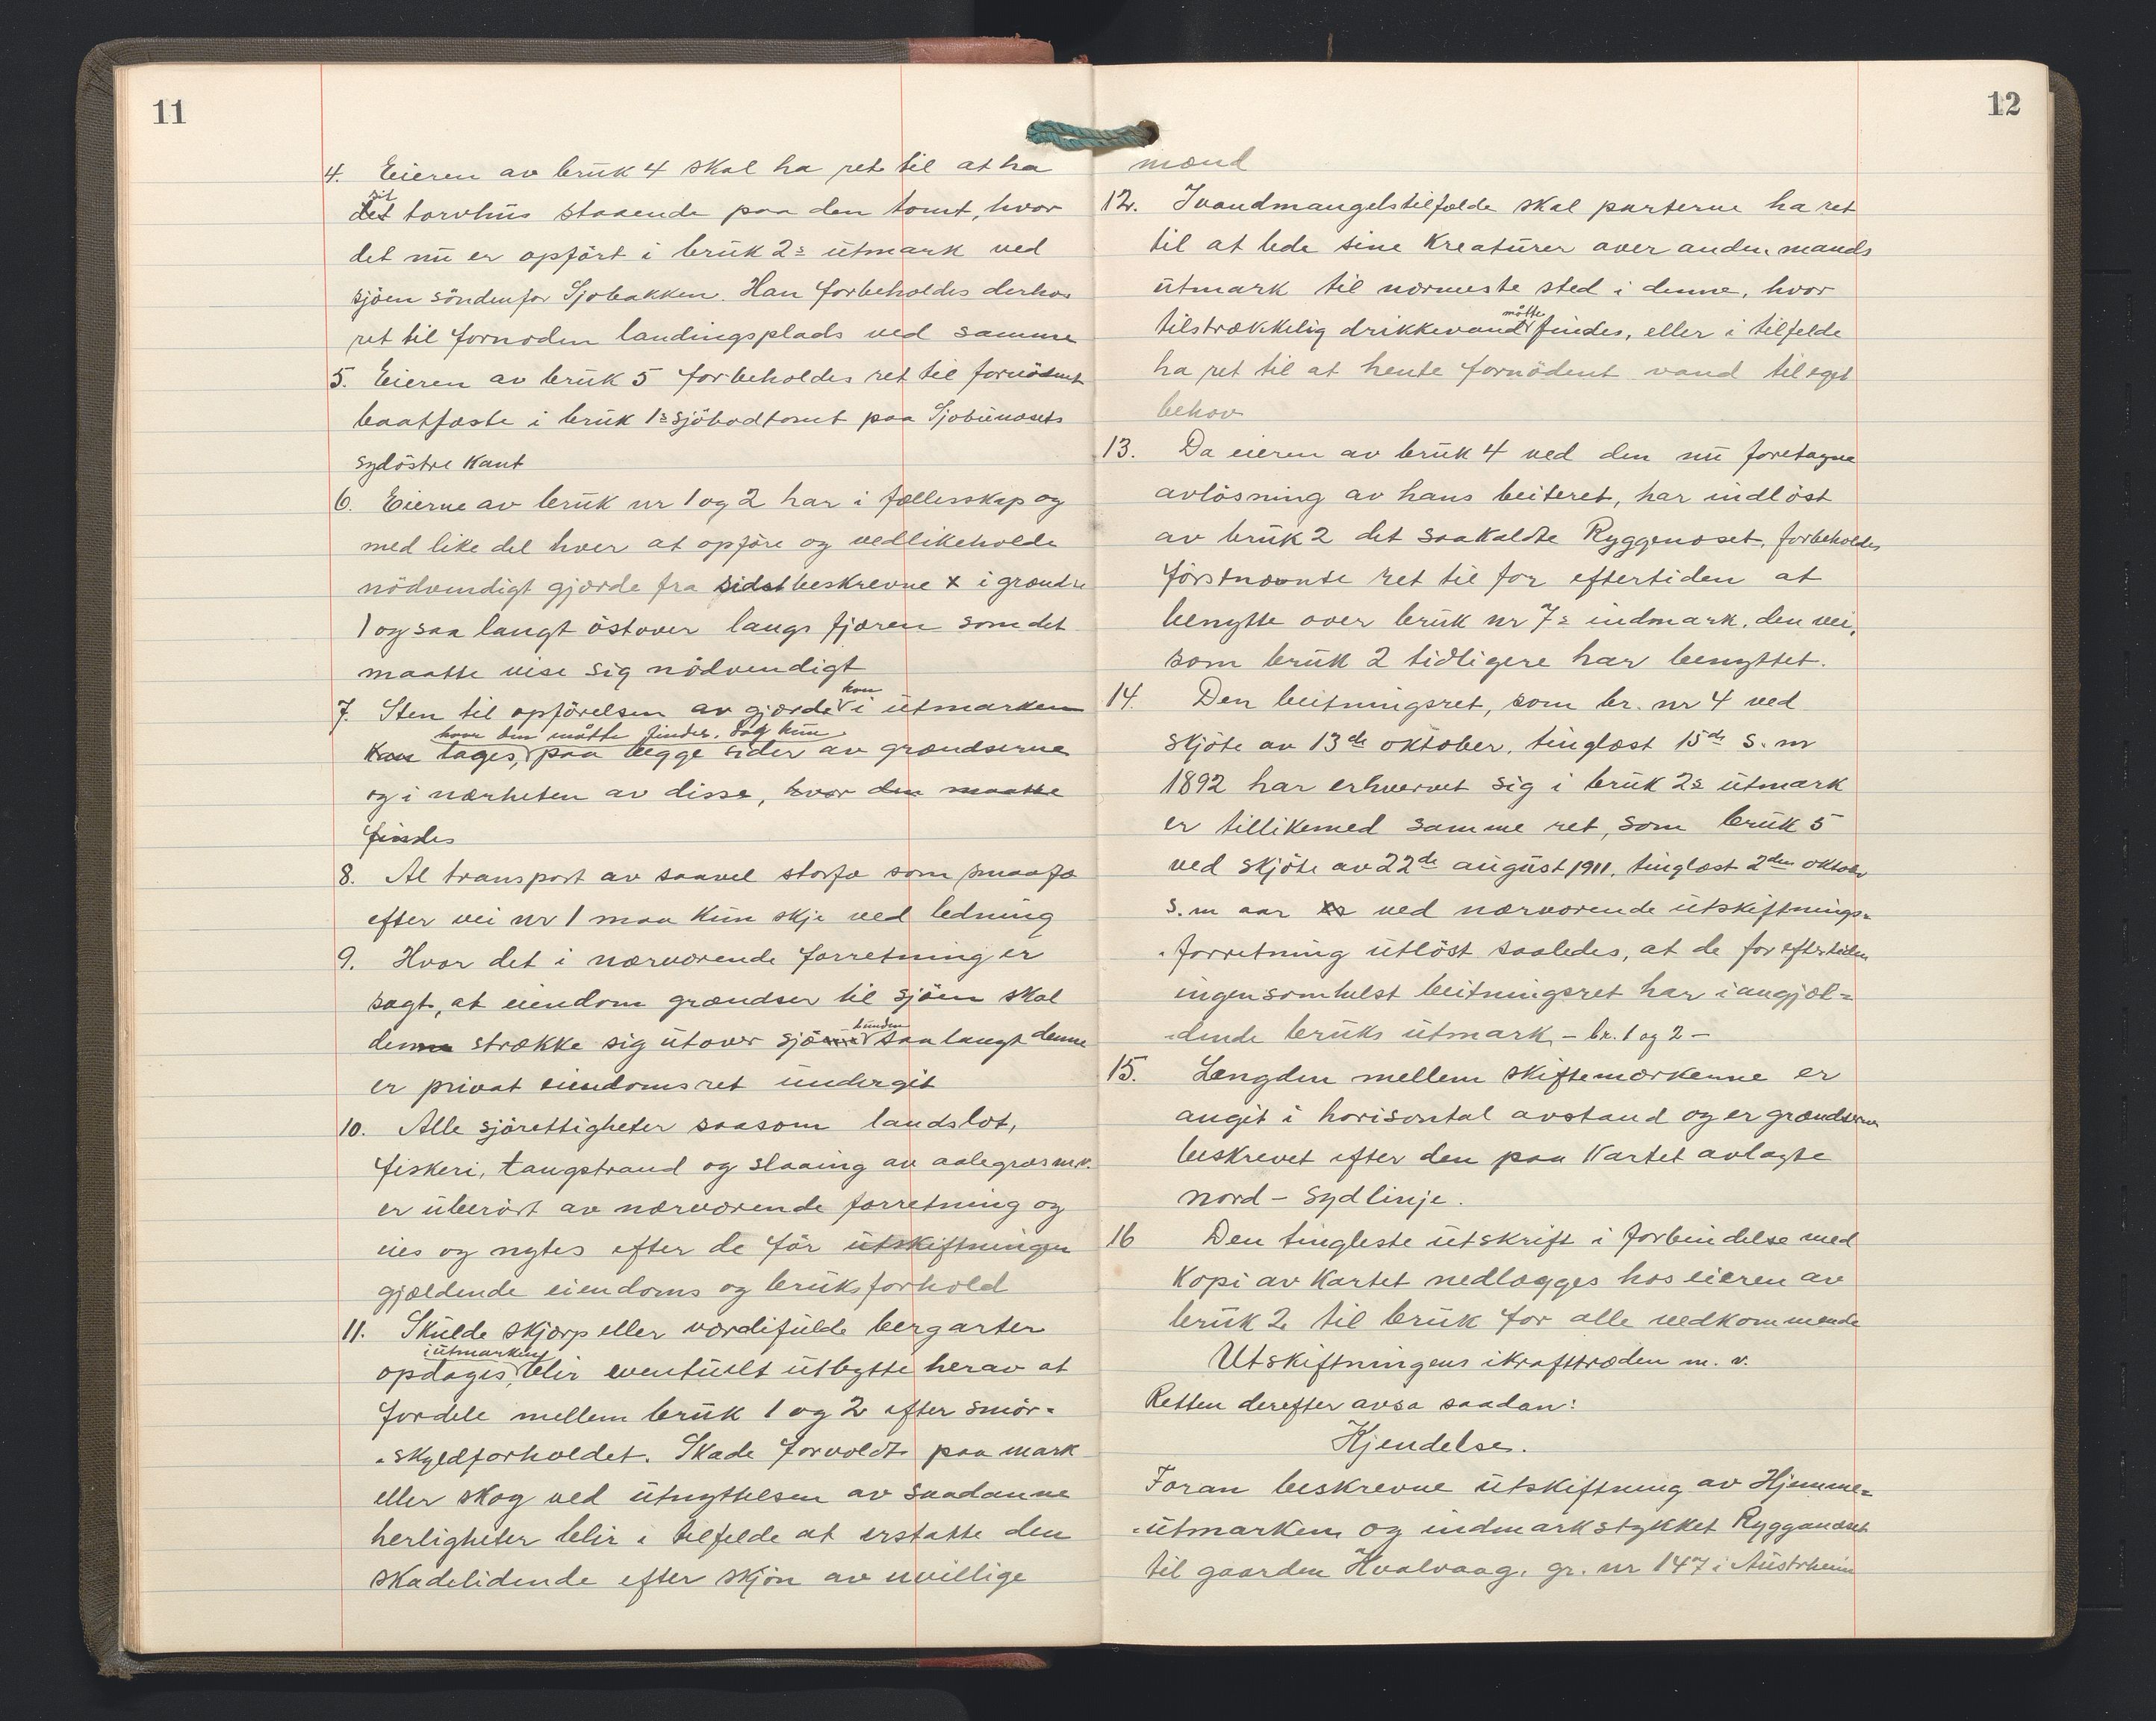 11
4. Eieren av bruk 4 skal ha ret til at ha
det sit torvhus staaende paa den tomt, hvor
det nu er opført i bruk 2s utmark ved
sjöen söndenfor Sjobakken. Han forbeholdes derhos
ret til fornøden landingsplads ved samme
5. Eieren av bruk 5 forbeholdes ret til fornödent
baatfæste i bruk 1s sjöbodtomt paa Sjobunæsets
sydöstre kant
6. Eierne av bruk nr 1 og 2 har i fællesskap og
med like del hver at opföre og vedlikeholde
nödvendigt gjærde fra sidst beskrevne x i grændse
1 og saa langt östover langs fjæren som det
maatte vise sig nödvendigt
7. Sten til opförelsen av gjærde kan i utmarken
kan tages, hvor den måtte findes, dog kun paa begge sider av grændserne
og i nærheten av disse, hvor den maatte
findes
8. Al transport av saavel storfæ som smaafæ
efter vei nr 1 maa kun skje ved ledning
9. Hvor det i nærværende forretning er
sagt, at eiendom grændser til sjöen skal
denne strække sig utover sjöens bunden saa langt denne
er privat eiendomsret undergit
10. Alle sjörettigheter saasom landslot,
fiskeri, tangstrand og slaaing av aalegræs m.v.
er uberört av nærværende forretning og
eies og nytes efter de för utskiftningen
gjældende eiendoms og bruksforhold
11. Skulde skjærp eller værdifulde bergarter
opdages, i utmarken blir eventuelt utbytte herav at
fordele mellem bruk 1 og 2 efter smör-
-skyldforholdet. Skade forvoldt paa mark
eller skog ved utnyttelsen av saadanne
herligheter blir i tilfelde at erstatte den
skadelidende efter skjön av uvillige
12
mænd
12. I vandmangelstilfælde skal parterne ha ret
til at lede sine kreaturer over anden mands
utmark til nærmeste sted i denne, hvor
tilstrækkelig drikkevand måtte findes, eller i tilfelde
ha ret til at hente fornödent vand til eget
behov
13. Da eieren av bruk 4 ved den nu foretagne
avlösning av hans beiteret, har indlöst
av bruk 2 det saakaldte Ryggenæset, forbeholdes
förstnævnte ret til for eftertiden at
benytte over bruk nr 7s indmark, den vei,
som bruk 2 tidligere har benyttet.
14. Den beitningsret, som br. nr 4 ved
skjöte av 13de oktober, tinglæst 15de s. m
1892 har erhvervet sig i bruk 2s utmark
er tillikemed samme ret, som bruk 5
ved skjöte av 22de august 1911, tinglæst 2den oktober
s. m aar ved nærværende utskiftnings-
-forretning utlöst saaledes, at de for eftertiden
ingensomhelst beitningsret har i angjæl-
-dende bruks utmark, - br. 1 og 2 -
15. Længden mellem skiftemærkerne er
angit i horisontal avstand og er grændserne
beskrevet efter den paa kartet avlagte
nord - sydlinje.
16 Den tingleste utskrift i forbindelse med
kopi av kartet nedlægges hos eieren av
bruk 2 til bruk for alle vedkommende
Utskiftningens ikrafttræden m. v.
Retten derefter avsa saadan:
Kjendelse.
Foran beskrevne utskiftning av Hjemme-
-utmarken og indmarkstykket Ryggenæset
til gaarden Hvalvaag, gr. nr 147 i Austrheim